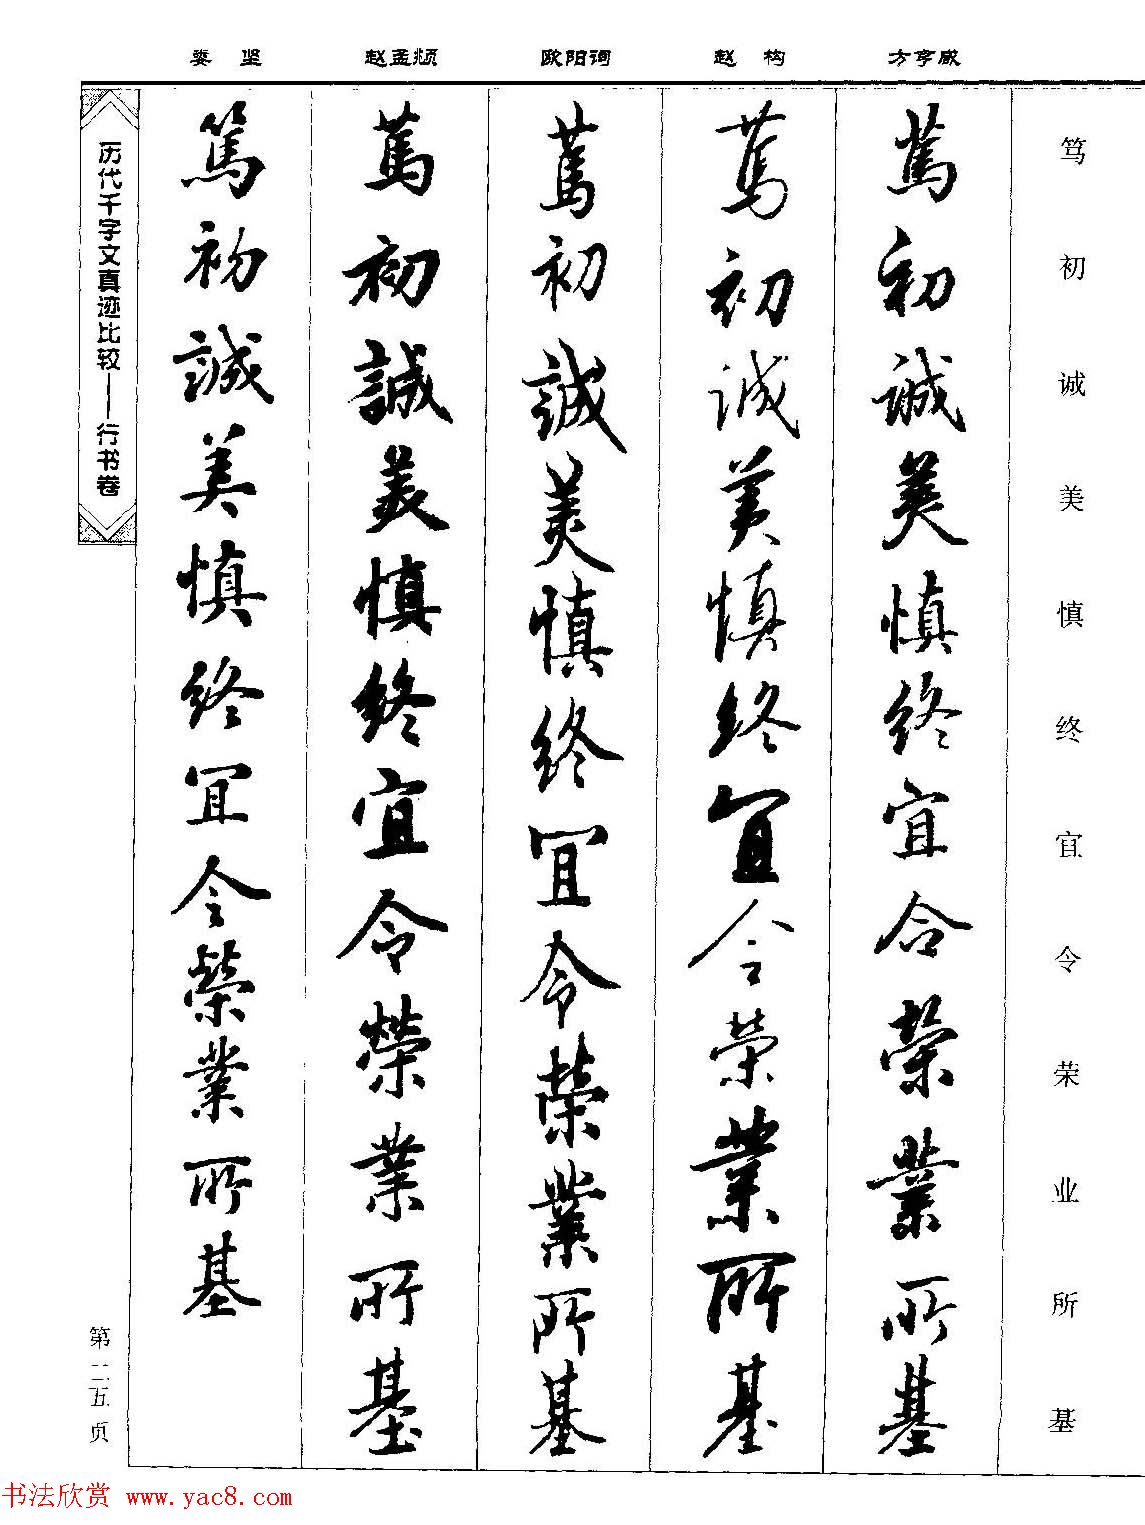 娄 坚 赵孟頫 欧阳询 赵 构 方亨咸
笃初诚美慎终宜令荣业所基
篤初誠美慎終宜令榮業所基
篤初誠美慎終宜令榮業所基
篤初誠美慎終宜令榮業所基
篤初誠美慎終宜令榮業所基
篤初誠美慎終宜令榮業所基
历代千字文真迹比较——行书卷
第二五页
书法欣赏 www.yac8.com